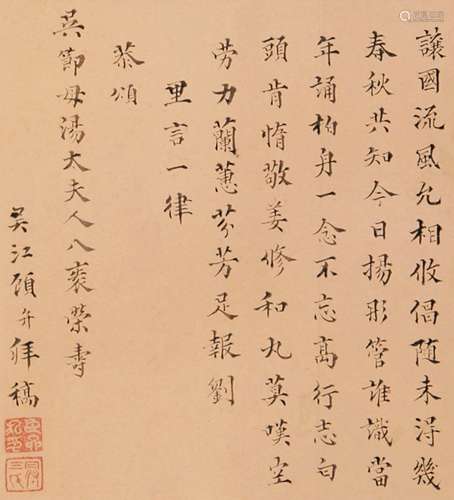 讓國流風允相攸倡隨未得幾
春秋共知今日揚彤管誰識當
年誦柏舟一念不忘高行志白
頭肯惰敬姜修和丸莫嘆空
勞力蘭蕙芬芳足報劉
里言一律
恭頌
吳節母湯太夫人八袠榮壽
吳江顧弁拜稿